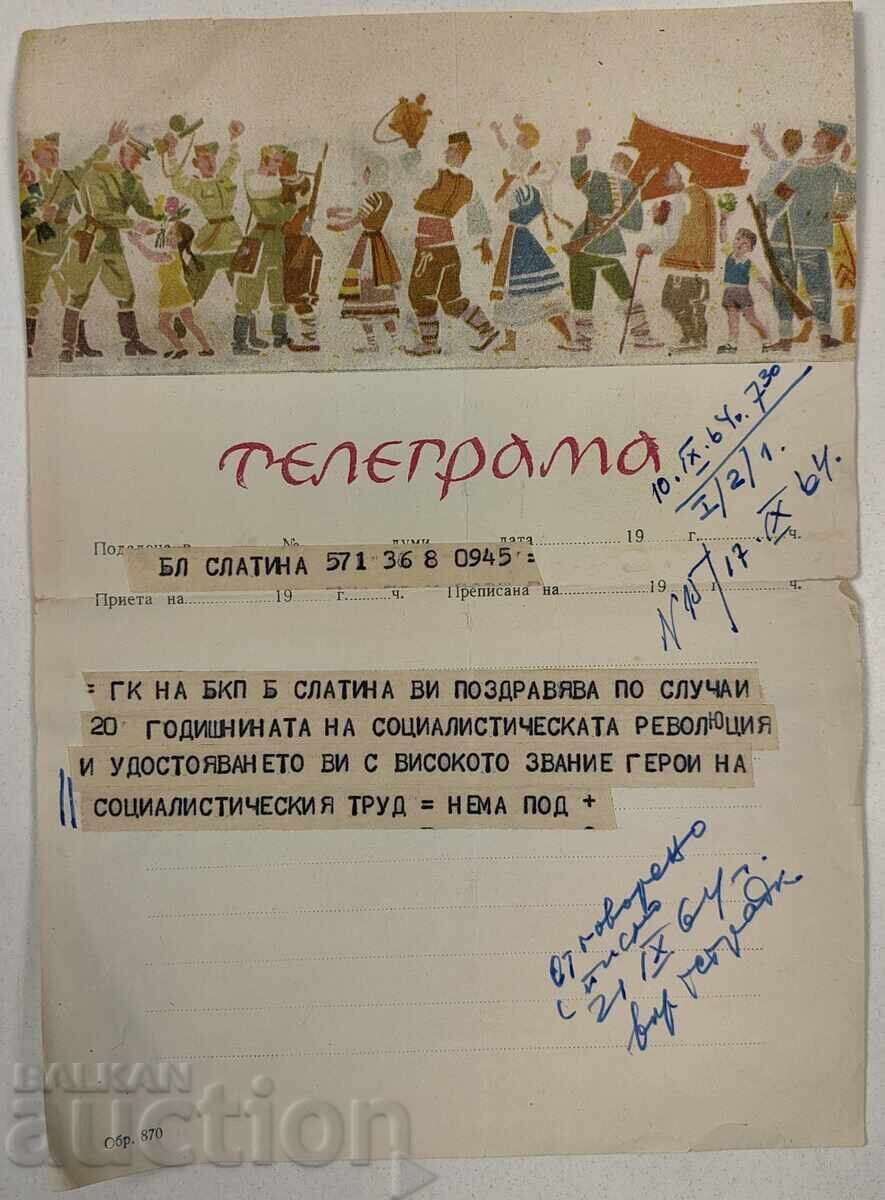 ТЕЛЕГРАМА
10.IX.64г. 7³⁰
I/2/1.
Подадена в № думи дата 19 г. ч.
БЛ СЛАТИНА 571 36 8 0945 =
17.IX 64.
Приета на 19 г. ч. Преписана на 19 г. ч.
= ГК НА БКП Б СЛАТИНА ВИ ПОЗДРАВЯВА ПО СЛУЧАИ
20 ГОДИШНИНАТА НА СОЦИАЛИСТИЧЕСКАТА РЕВОЛЮЦИЯ
И УДОСТОЯВАНЕТО ВИ С ВИСОКОТО ЗВАНИЕ ГЕРОИ НА
СОЦИАЛИСТИЧЕСКИЯ ТРУД = НЕМА ПОД +
Отговорено
с писмо
21 IX 64 г.
Обр. 870
BALKAN
auction